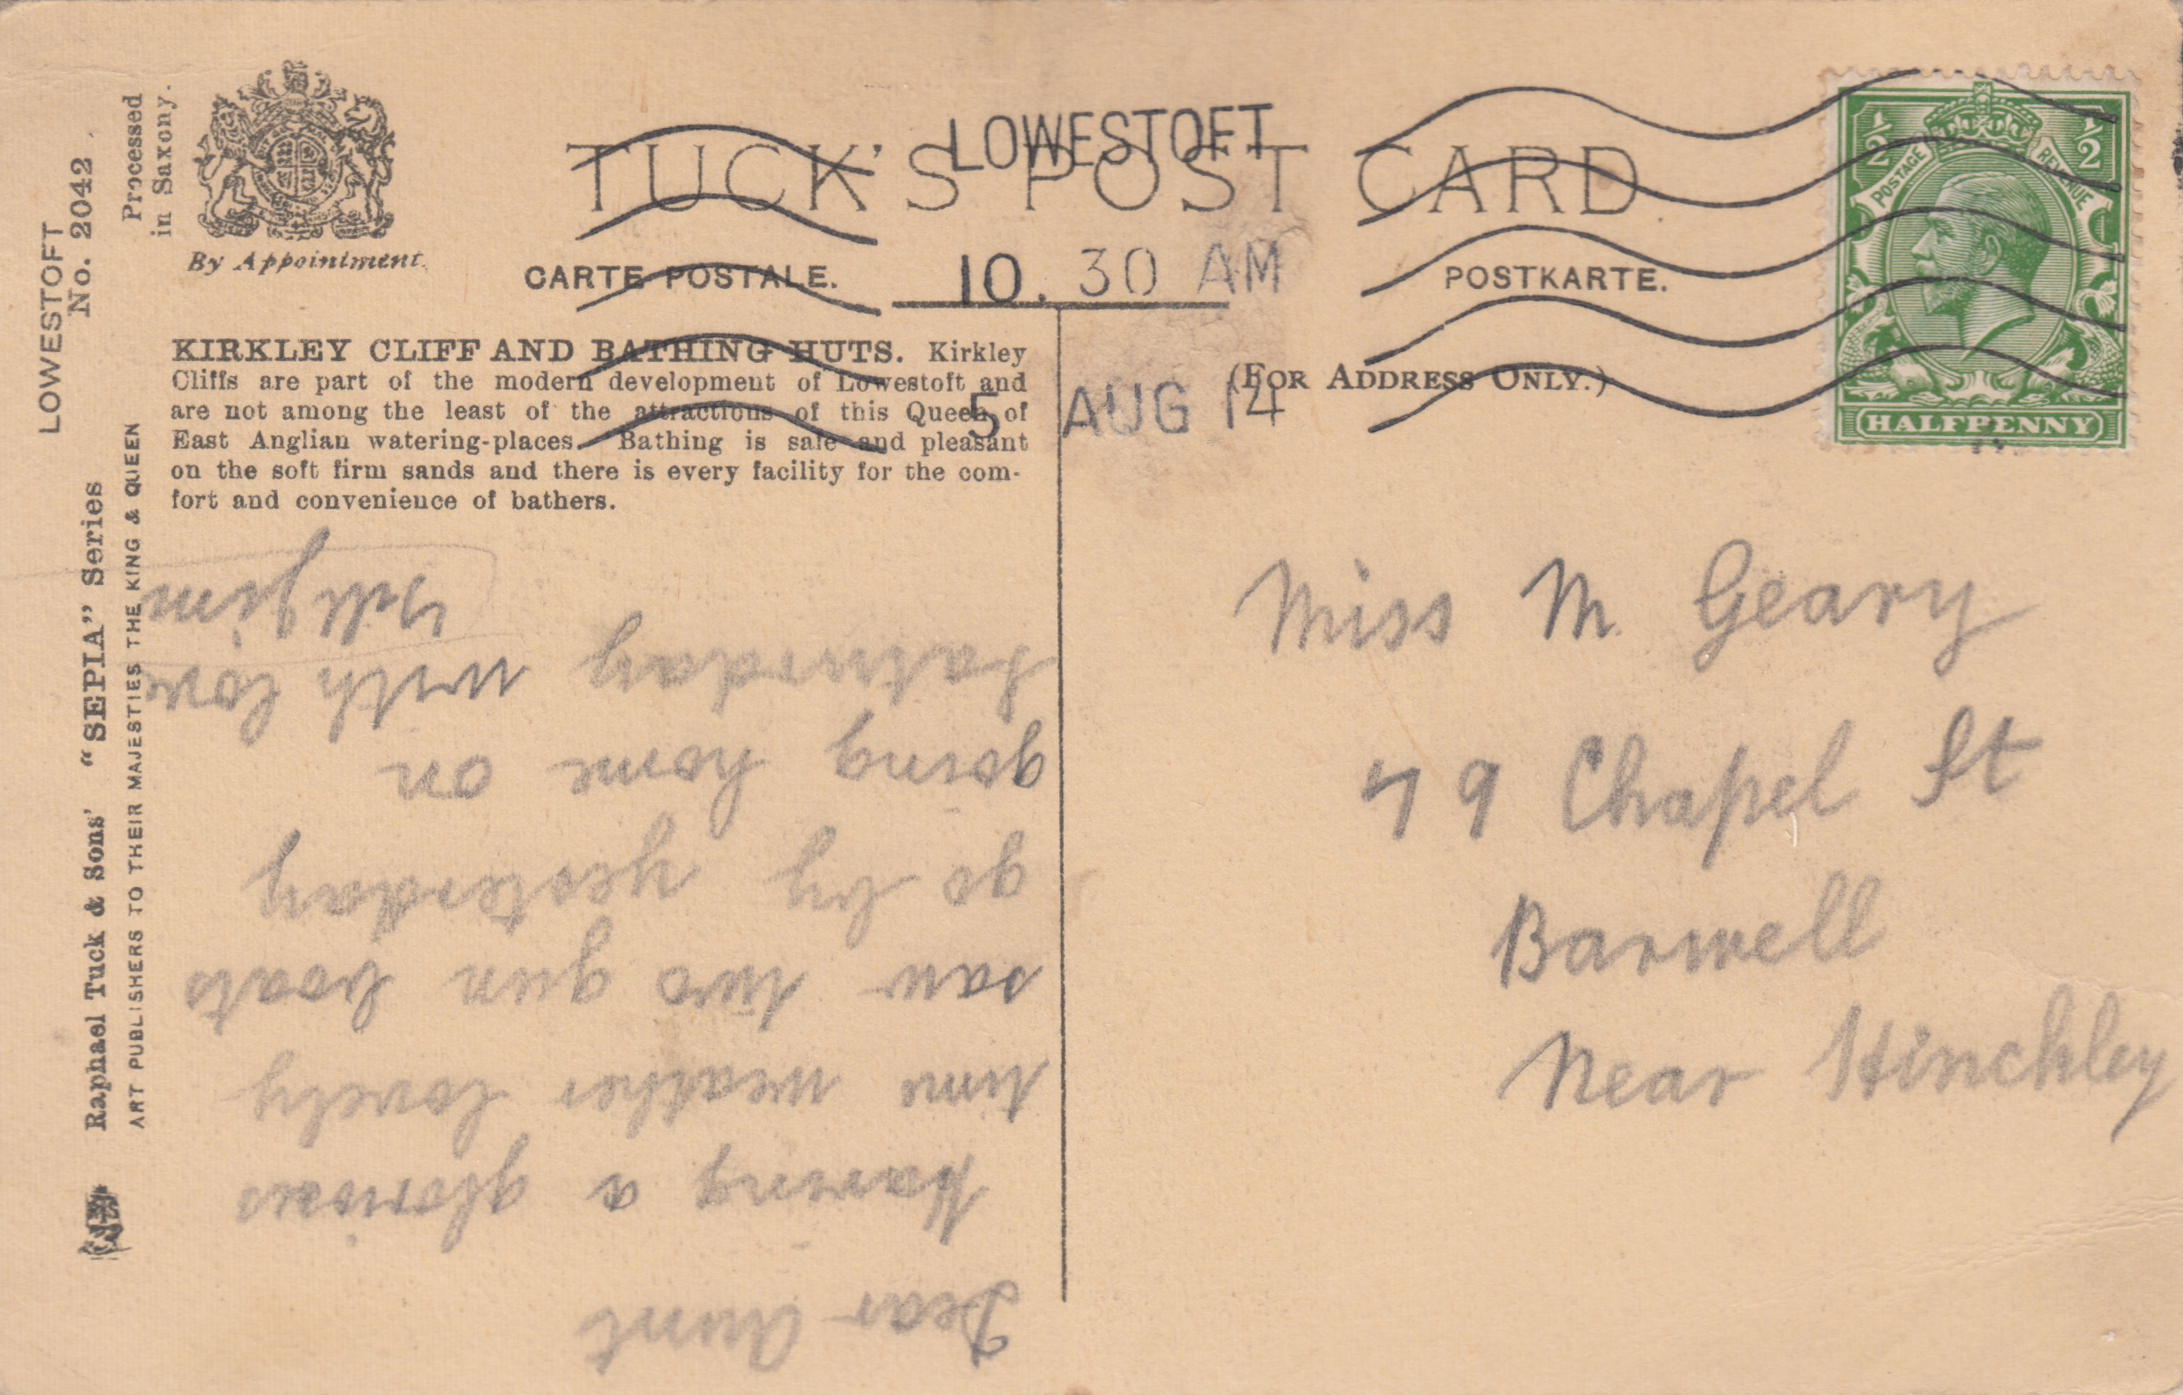 LOWESTOFT
No. 2042
Processed
in Saxony.
By Appointment.
TUCK'S POST CARD
CARTE POSTALE.
POSTKARTE.
LOWESTOFT
10. 30 AM
5 AUG 14
POSTAGE
REVENUE
½
½
HALFPENNY
KIRKLEY CLIFF AND BATHING HUTS. Kirkley
Cliffs are part of the modern development of Lowestoft and
are not among the least of the attractions of this Queen of
East Anglian watering-places. Bathing is safe and pleasant
on the soft firm sands and there is every facility for the com-
fort and convenience of bathers.
(FOR ADDRESS ONLY.)
Raphael Tuck & Sons' "SEPIA" Series
ART PUBLISHERS TO THEIR MAJESTIES THE KING & QUEEN
Dear Aunt
Having a glorious
time weather lovely
saw two gun boats
go by yesterday
going home on
Saturday with love
Miss M. Geary
79 Chapel St
Barwell
Near Hinckley